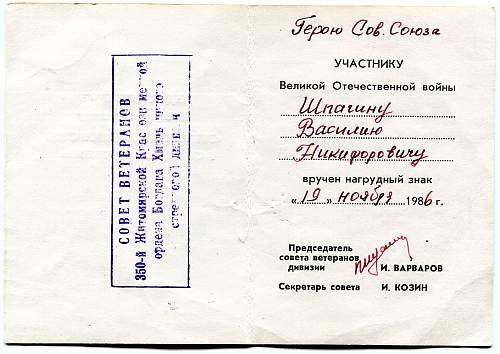 СОВЕТ ВЕТЕРАНОВ
350-й Житомирской
ордена
Герою Сов. Союза
УЧАСТНИКУ
Великой Отечественной войны
Шпагину
Василию
Никифоровичу
вручен нагрудный знак
«19» ноября 1986 г.
Председатель
совета ветеранов
дивизии И. ВАРВАРОВ
Секретарь совета И. КОЗИН